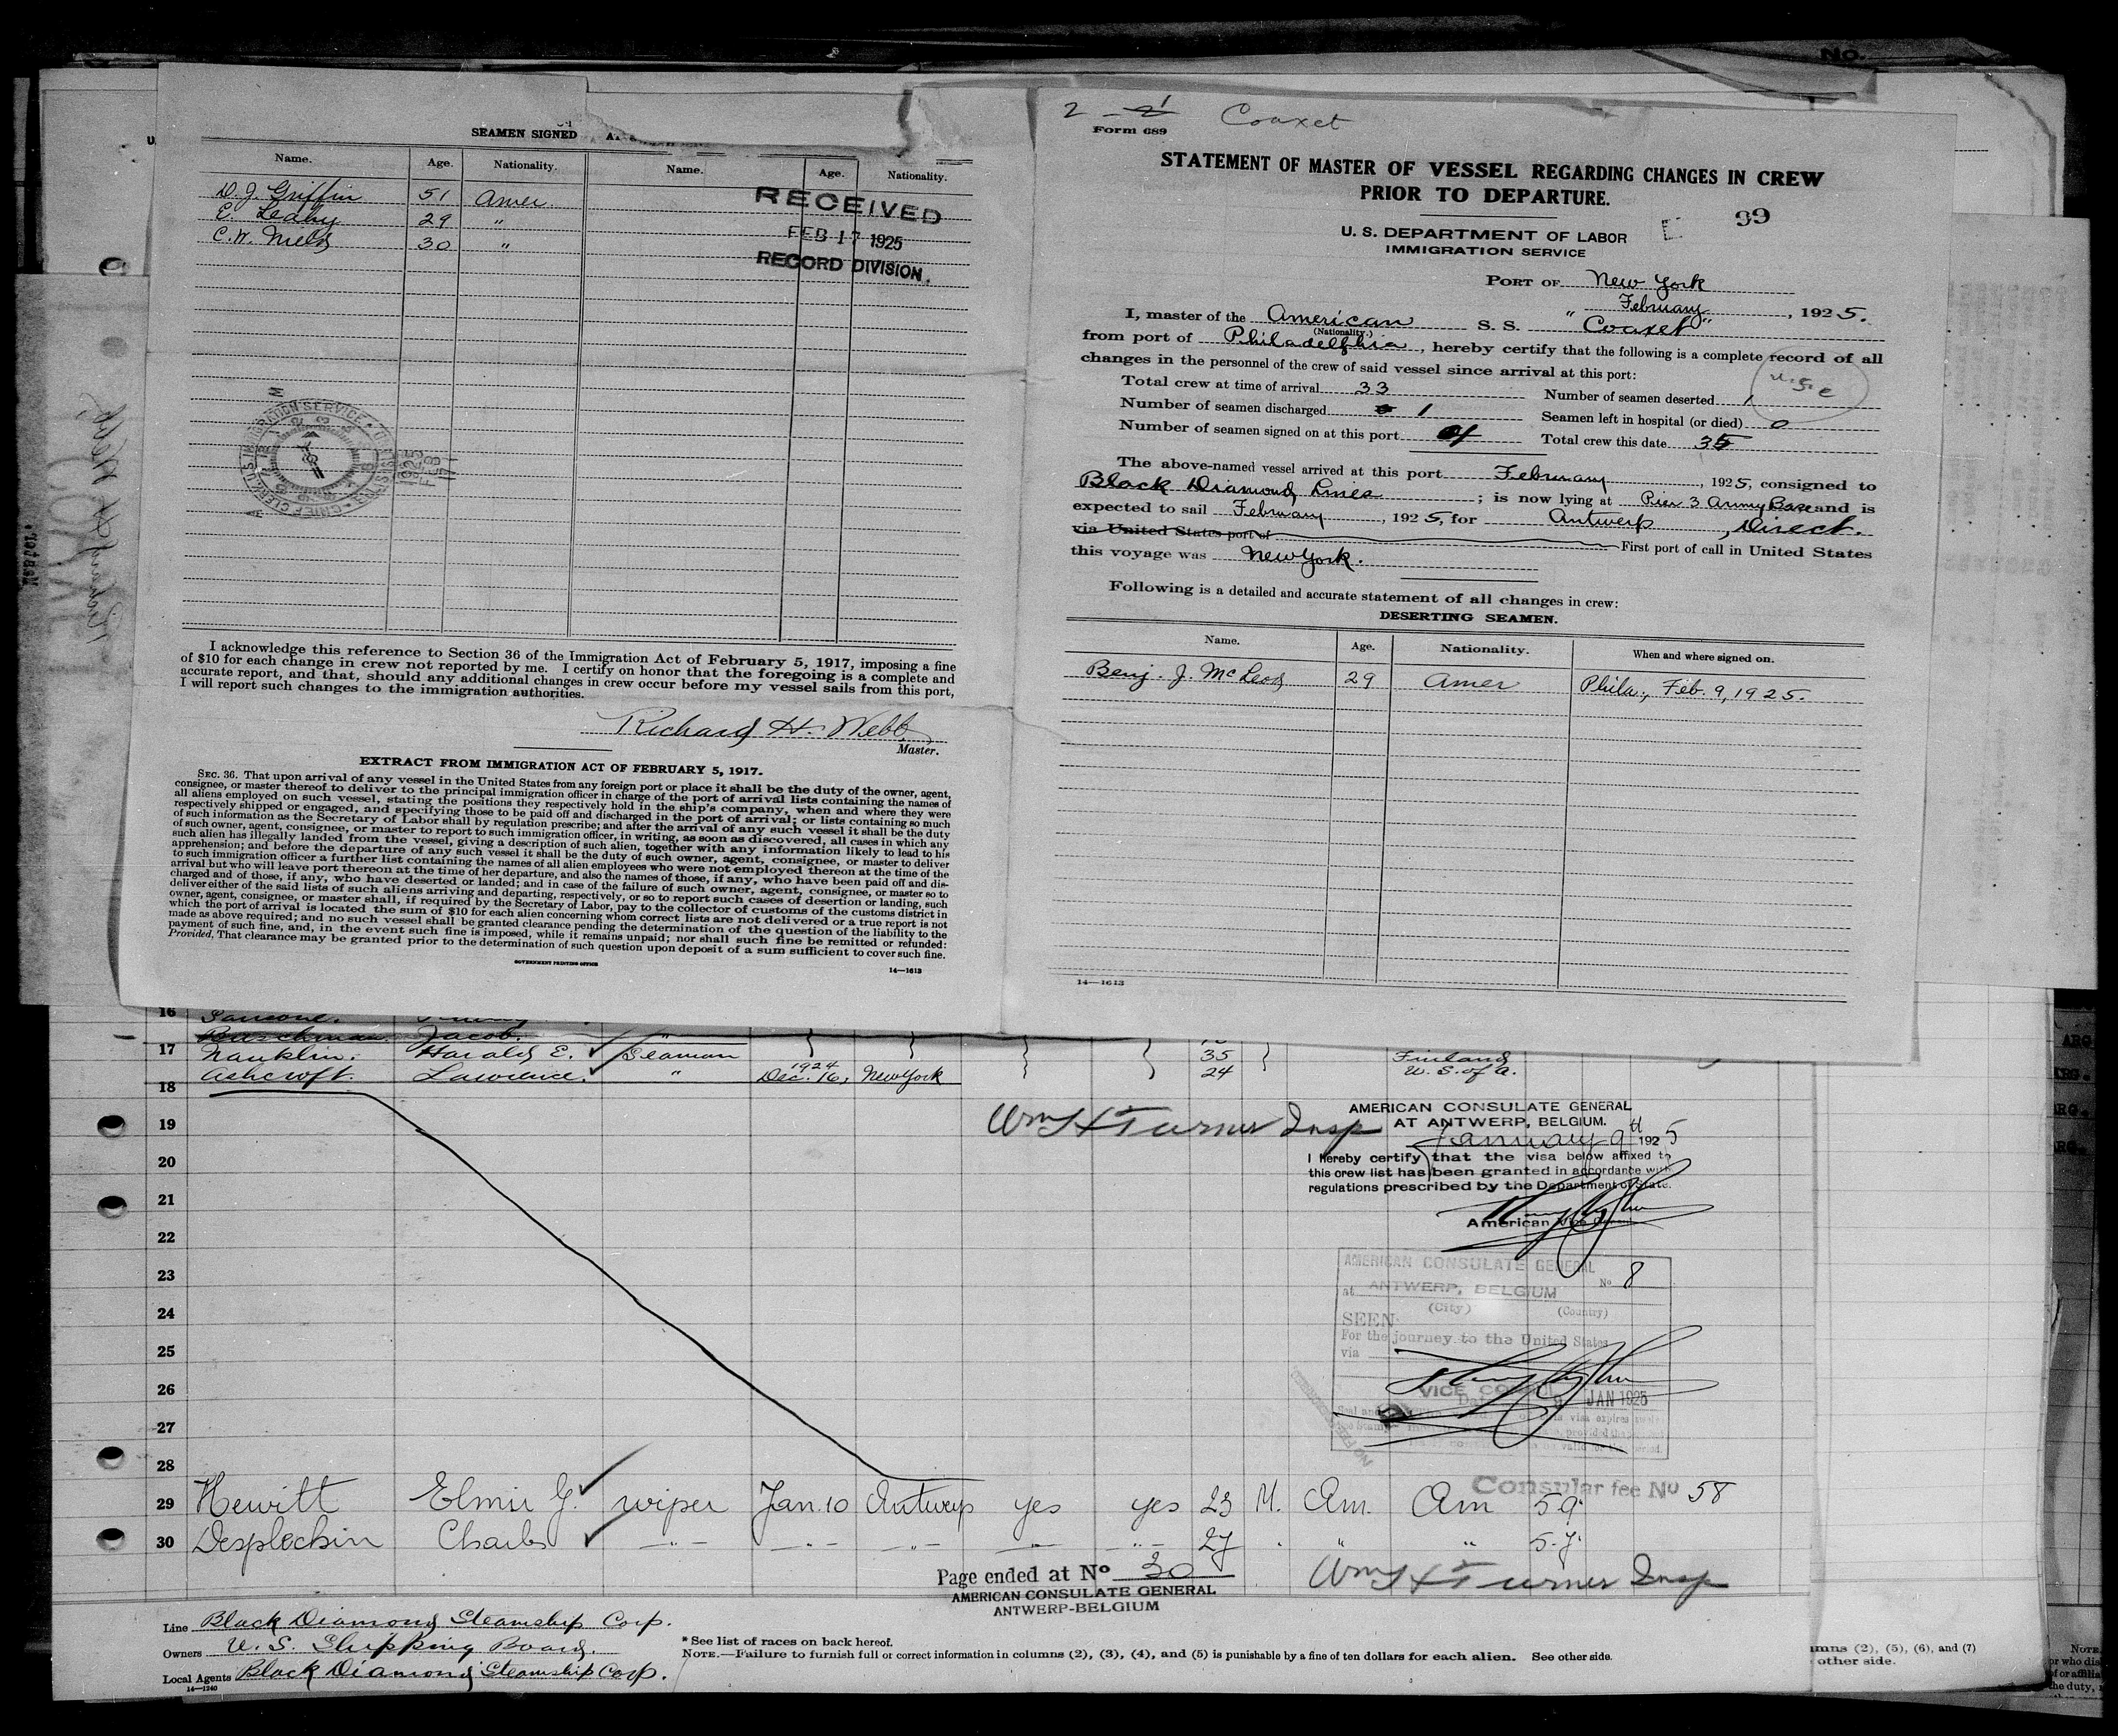 No.
SEAMEN SIGNED
Name. Age. Nationality. Name. Age. Nationality.
D. J. Griffin 51 Amer.
E. Leahy 29 "
C. W. 30 "
RECEIVED
FEB 17 1925
RECORD DIVISION.
I acknowledge this reference to Section 36 of the Immigration Act of February 5, 1917, imposing a fine
of $10 for each change in crew not reported by me. I certify on honor that the foregoing is a complete and
accurate report, and that, should any additional changes in crew occur before my vessel sails from this port,
I will report such changes to the immigration authorities.
Richard H. Webb
Master.
EXTRACT FROM IMMIGRATION ACT OF FEBRUARY 5, 1917.
SEC. 36. That upon arrival of any vessel in the United States from any foreign port or place it shall be the duty of the owner, agent,
consignee, or master thereof to deliver to the principal immigration officer in charge of the port of arrival lists containing the names of
all aliens employed on such vessel, stating the positions they respectively hold in the ship's company, when and where they were
respectively shipped or engaged, and specifying those to be paid off and discharged in the port of arrival; or lists containing so much
of such information as the Secretary of Labor shall by regulation prescribe; and after the arrival of any such vessel it shall be the duty
of such owner, agent, consignee, or master to report to such immigration officer, in writing, as soon as discovered, all cases in which any
such alien has illegally landed from the vessel, giving a description of such alien, together with any information likely to lead to his
apprehension; and before the departure of any such vessel it shall be the duty of such owner, agent, consignee, or master to deliver
to such immigration officer a further list containing the names of all alien employees who were not employed thereon at the time of the
arrival but who will leave port thereon at the time of her departure, and also the names of those, if any, who have been paid off and dis-
charged and of those, if any, who have deserted or landed; and in case of the failure of such owner, agent, consignee, or master so to
deliver either of the said lists of such aliens arriving and departing, respectively, or so to report such cases of desertion or landing, such
owner, agent, consignee, or master shall, if required by the Secretary of Labor, pay to the collector of customs of the customs district in
which the port of arrival is located the sum of $10 for each alien concerning whom correct lists are not delivered or a true report is not
made as above required; and no such vessel shall be granted clearance pending the determination of the question of the liability to the
payment of such fine, and, in the event such fine is imposed, while it remains unpaid; nor shall such fine be remitted or refunded:
Provided, That clearance may be granted prior to the determination of such question upon deposit of a sum sufficient to cover such fine.
GOVERNMENT PRINTING OFFICE
14—1613
2 - 21 Coaxet
Form 689
STATEMENT OF MASTER OF VESSEL REGARDING CHANGES IN CREW
PRIOR TO DEPARTURE.
99
U. S. DEPARTMENT OF LABOR
IMMIGRATION SERVICE
PORT OF New York
" February " , 1925.
I, master of the American S. S. Coaxet
(Nationality.)
from port of Philadelphia , hereby certify that the following is a complete record of all
changes in the personnel of the crew of said vessel since arrival at this port:
U.S.C
Total crew at time of arrival 33 Number of seamen deserted 1
Number of seamen discharged 1 Seamen left in hospital (or died) 0
Number of seamen signed on at this port 4 Total crew this date 35
The above-named vessel arrived at this port February , 1925, consigned to
Black Diamond Lines ; is now lying at Pier 3 Army Base and is
expected to sail February , 1925, for Antwerp , Direct.
via United States port of First port of call in United States
this voyage was New York.
Following is a detailed and accurate statement of all changes in crew:
DESERTING SEAMEN.
Name. Age. Nationality. When and where signed on.
Benj. J. McLeod 29 Amer Phila., Feb. 9, 1925.
14—1613
16
Jacob.
17 Nauklin. Harald E. Seaman 35 Finland
18 Ashcroft. Lawrence. " 1924 Dec. 16, New York 24 U. S. of A.
19
20
21
22
23
24
25
26
27
28
Wm H Turner Insp
AMERICAN CONSULATE GENERAL
AT ANTWERP, BELGIUM.
January 9th 1925
I hereby certify that the visa below affixed to
this crew list has been granted in accordance with
regulations prescribed by the Department of State.
American Vice Consul
AMERICAN CONSULATE GENERAL
No 8
at ANTWERP, BELGIUM
(City) (Country)
SEEN
For the journey to the United States
via
VICE CONSUL
Date 9 JAN 1925
Consular fee No 58
29 Hewitt Elmir G. wiper Jan. 10 Antwerp yes yes 23 M. Am. Am 5 9
30 Desplechin Charles " " " " " 27 " " 5-7
Page ended at No 30
AMERICAN CONSULATE GENERAL
ANTWERP-BELGIUM
Wm H Turner Insp
Line Black Diamond Steamship Corp.
Owners U. S. Shipping Board.
Local Agents Black Diamond Steamship Corp.
14—1240
* See list of races on back hereof.
NOTE.—Failure to furnish full or correct information in columns (2), (3), (4), and (5) is punishable by a fine of ten dollars for each alien. See other side.
mns (2), (5), (6), and (7)
other side.